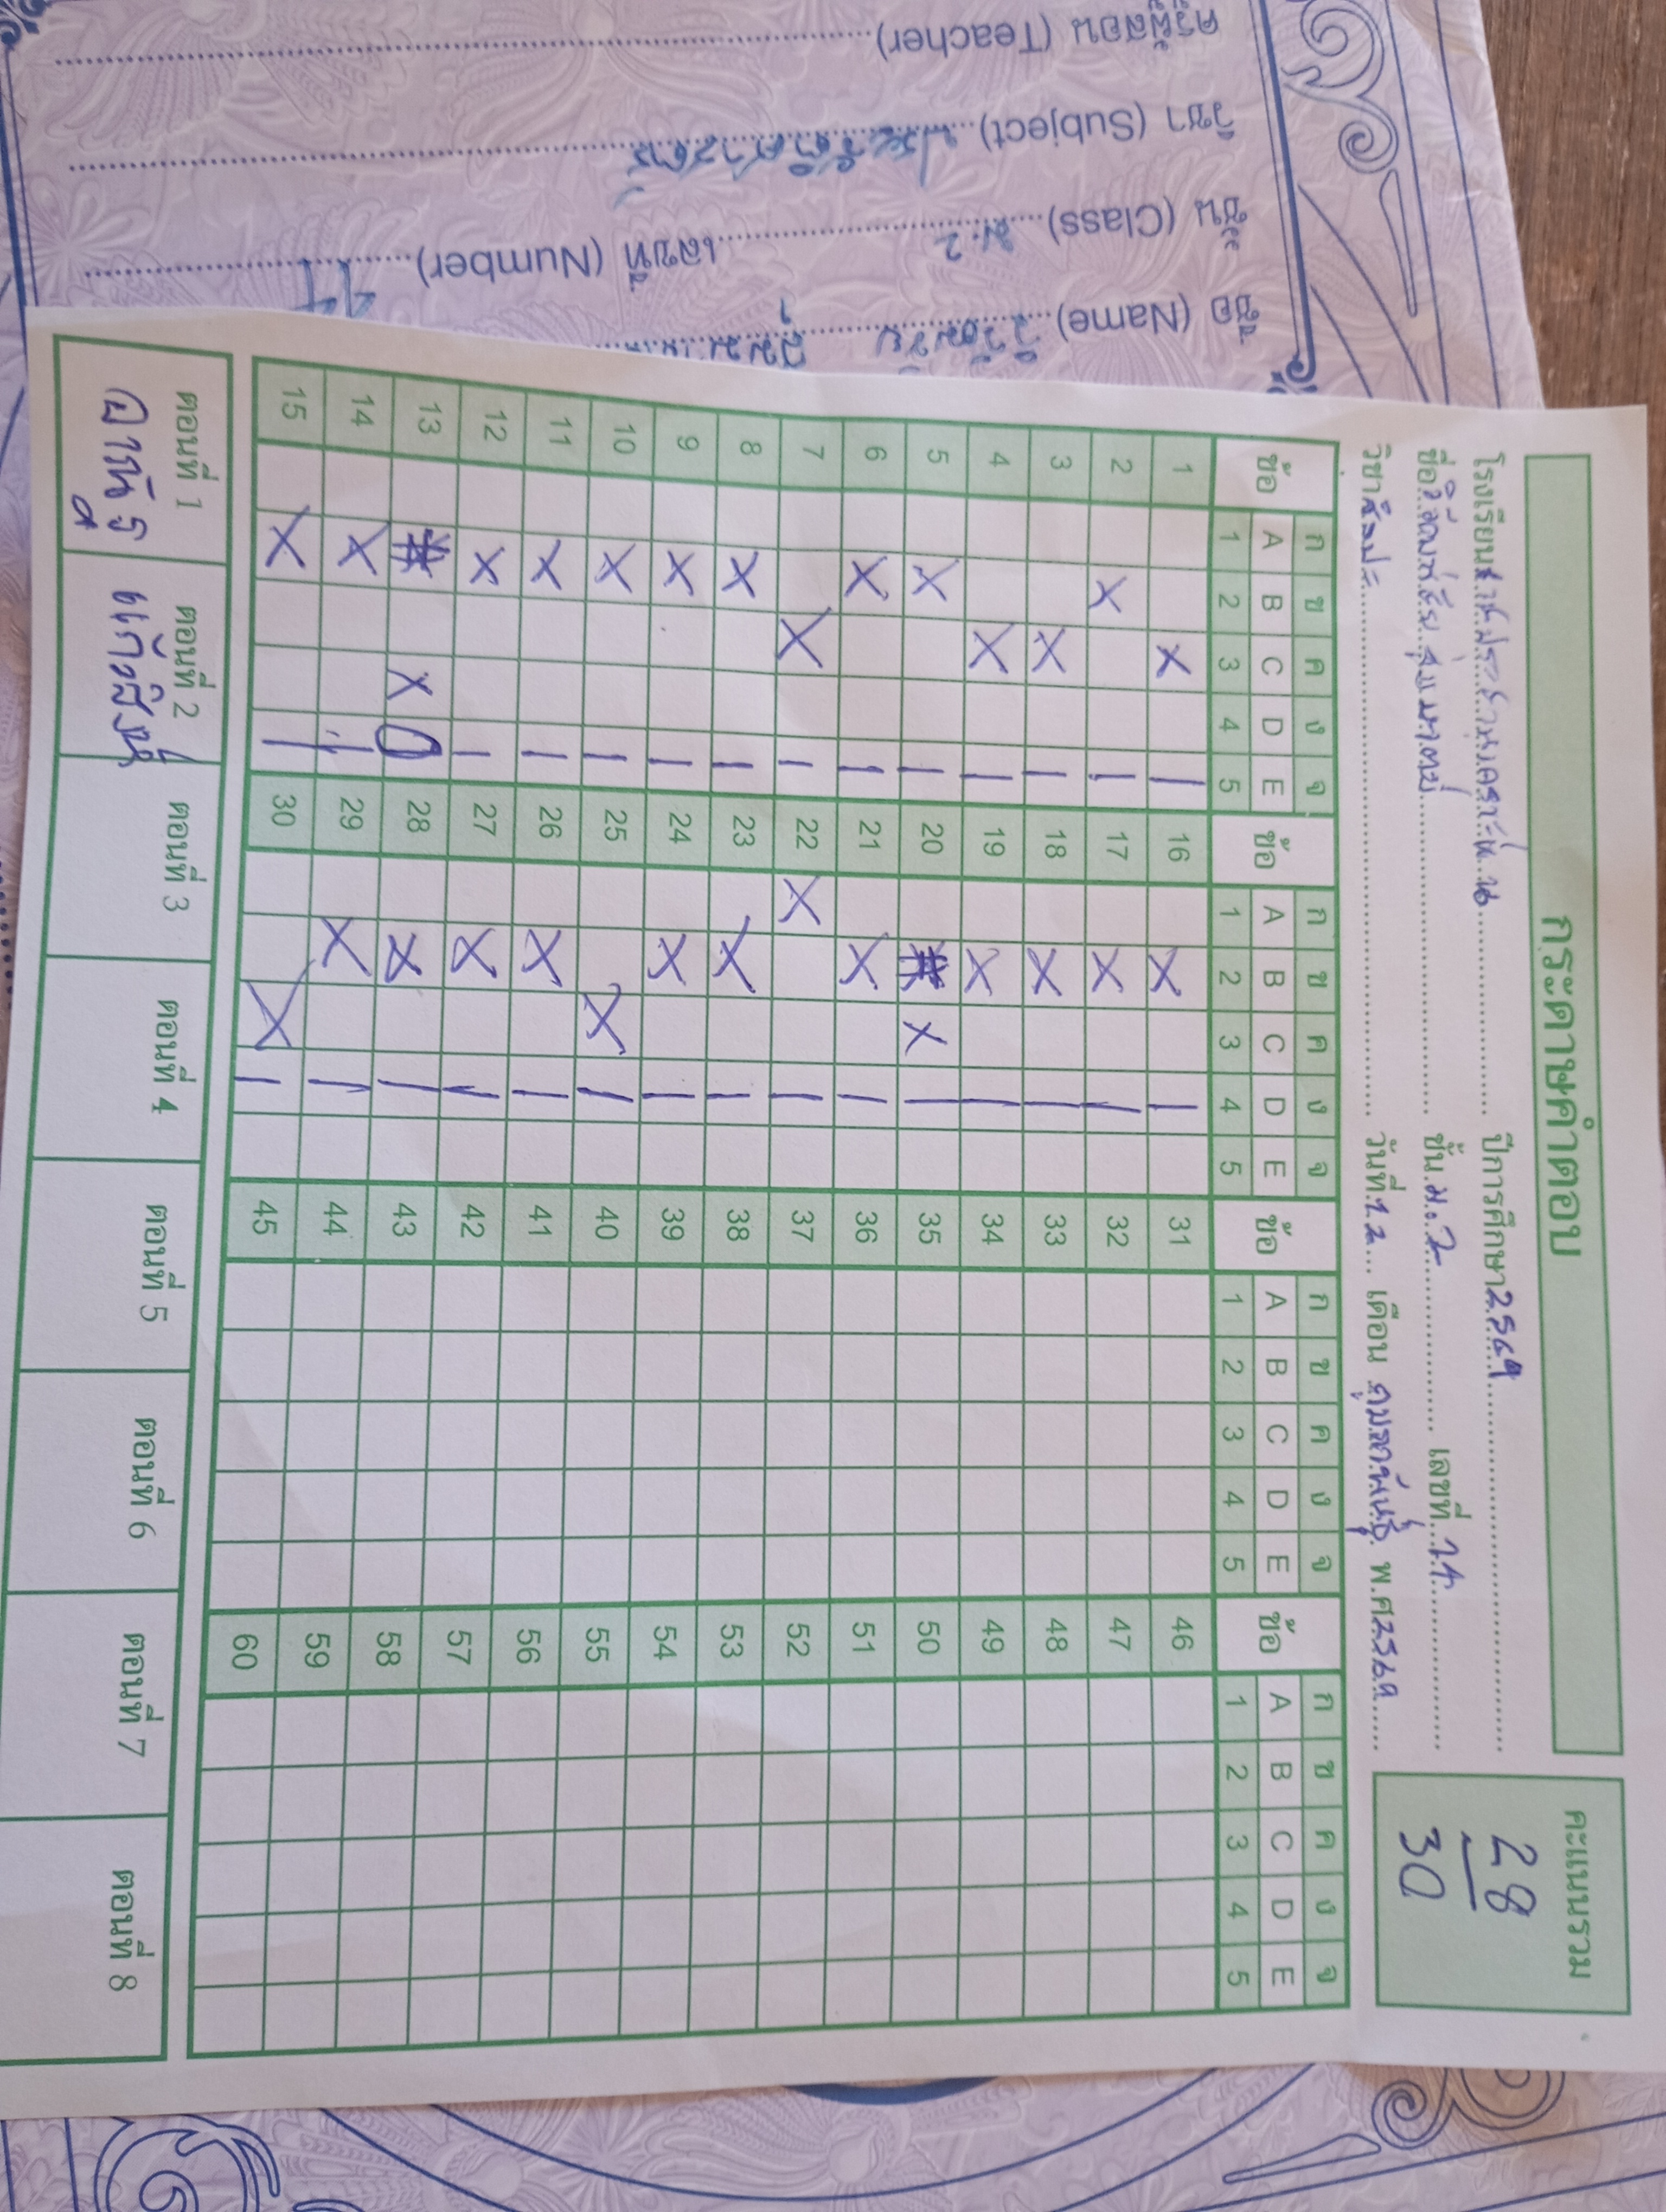 ครูผู้สอน (Teacher)
วิชา (Subject) ประวัติศาสตร์
ชั้น (Class) ม.2 เลขที่ (Number) 14
ชื่อ (Name)
กระดาษคำตอบ
คะแนนรวม
28
30
โรงเรียน ปีการศึกษา 2569
ชื่อ ชั้น ม.2 เลขที่ 14
วิชา ศิลปะ วันที่ 12 เดือน กุมภาพันธ์ พ.ศ 2569
ข้อ ก ข ค ง จ ข้อ ก ข ค ง จ ข้อ ก ข ค ง จ ข้อ ก ข ค ง จ
A B C D E A B C D E A B C D E A B C D E
1 2 3 4 5 1 2 3 4 5 1 2 3 4 5 1 2 3 4 5
1 X 16 X 31 46
2 X 17 X 32 47
3 X 18 X 33 48
4 X 19 X 34 49
5 X 20 X 35 50
6 X 21 X 36 51
7 X 22 X 37 52
8 X 23 X 38 53
9 X 24 X 39 54
10 X 25 X 40 55
11 X 26 X 41 56
12 X 27 X 42 57
13 X 28 X 43 58
14 X 29 X 44 59
15 X 30 X 45 60
ตอนที่ 1 ตอนที่ 2 ตอนที่ 3 ตอนที่ 4 ตอนที่ 5 ตอนที่ 6 ตอนที่ 7 ตอนที่ 8